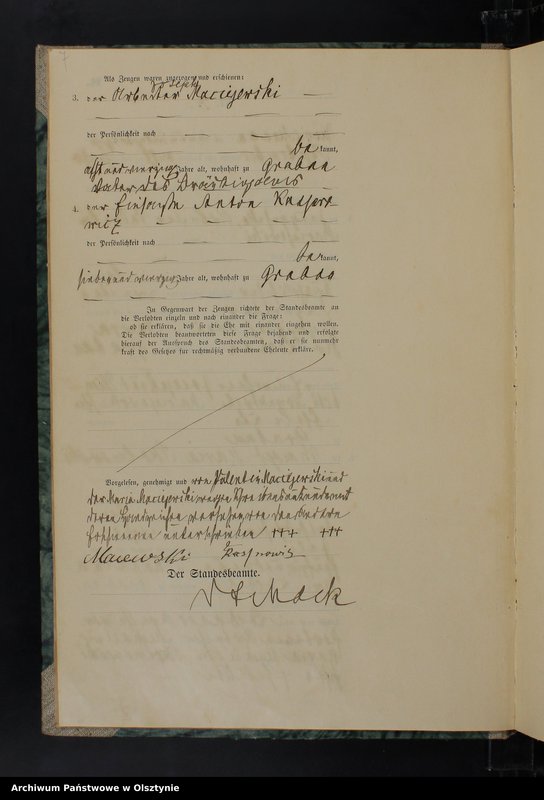 7
Als Zeugen waren zugezogen und erschienen:
Joseph
3. der Arbeiter Maciejewski
der Persönlichkeit nach
be kannt,
acht und vierzig Jahre alt, wohnhaft zu Grabau
Vater des Bräutigams
4. der Einsasse Anton Kasprowicz
der Persönlichkeit nach
be kannt,
sieben und vierzig Jahre alt, wohnhaft zu Grabau
In Gegenwart der Zeugen richtete der Standesbeamte an
die Verlobten einzeln und nach einander die Frage:
ob sie erklären, daß sie die Ehe mit einander eingehen wollen.
Die Verlobten beantworteten diese Frage bejahend und erfolgte
hierauf der Ausspruch des Standesbeamten, daß er sie nunmehr
kraft des Gesetzes für rechtmäßig verbundene Eheleute erkläre.
Vorgelesen, genehmigt und von Valentin Maciejewski und
der Maria Maciejewski wegen
deren Handzeichen versehen von den Anderen
unterschrieben +++ +++
Der Standesbeamte.
Archiwum Państwowe w Olsztynie